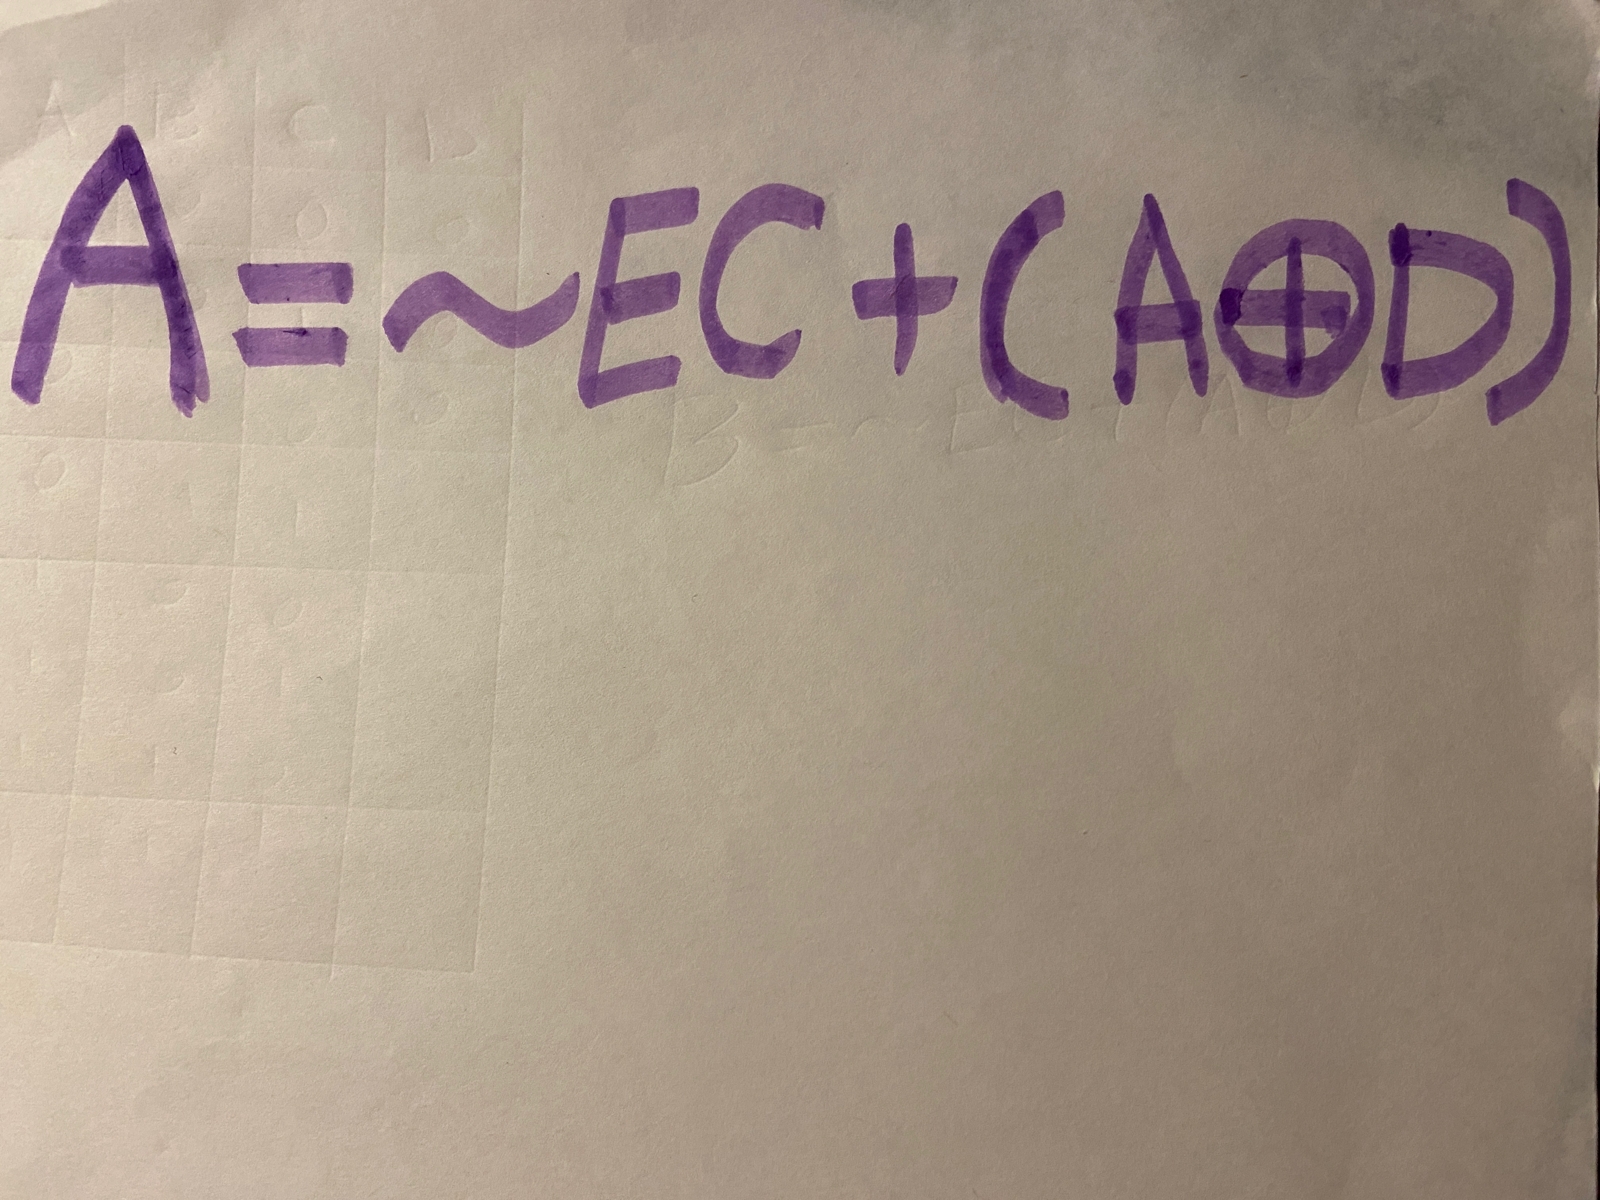 A = ~EC + (A⊕D)